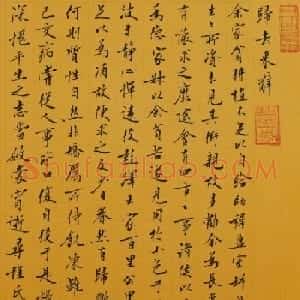 歸去來辭
余家貧耕植不足以自給幼稚盈室
生生所資未見其術親故多勸余為長吏
有懷求之靡途會有四方之事諸侯以
為德家叔以余貧苦遂見用於小邑于
波未靜心憚遠役彭澤去家百里公田
足以為酒故便求之少日眷然有歸歟
何則質性自然非矯厲所得飢凍雖
己交病嘗從人事皆口腹自役於是悵
深愧平生之志猶望斂裳宵逝尋程氏
Shufaziliao.com